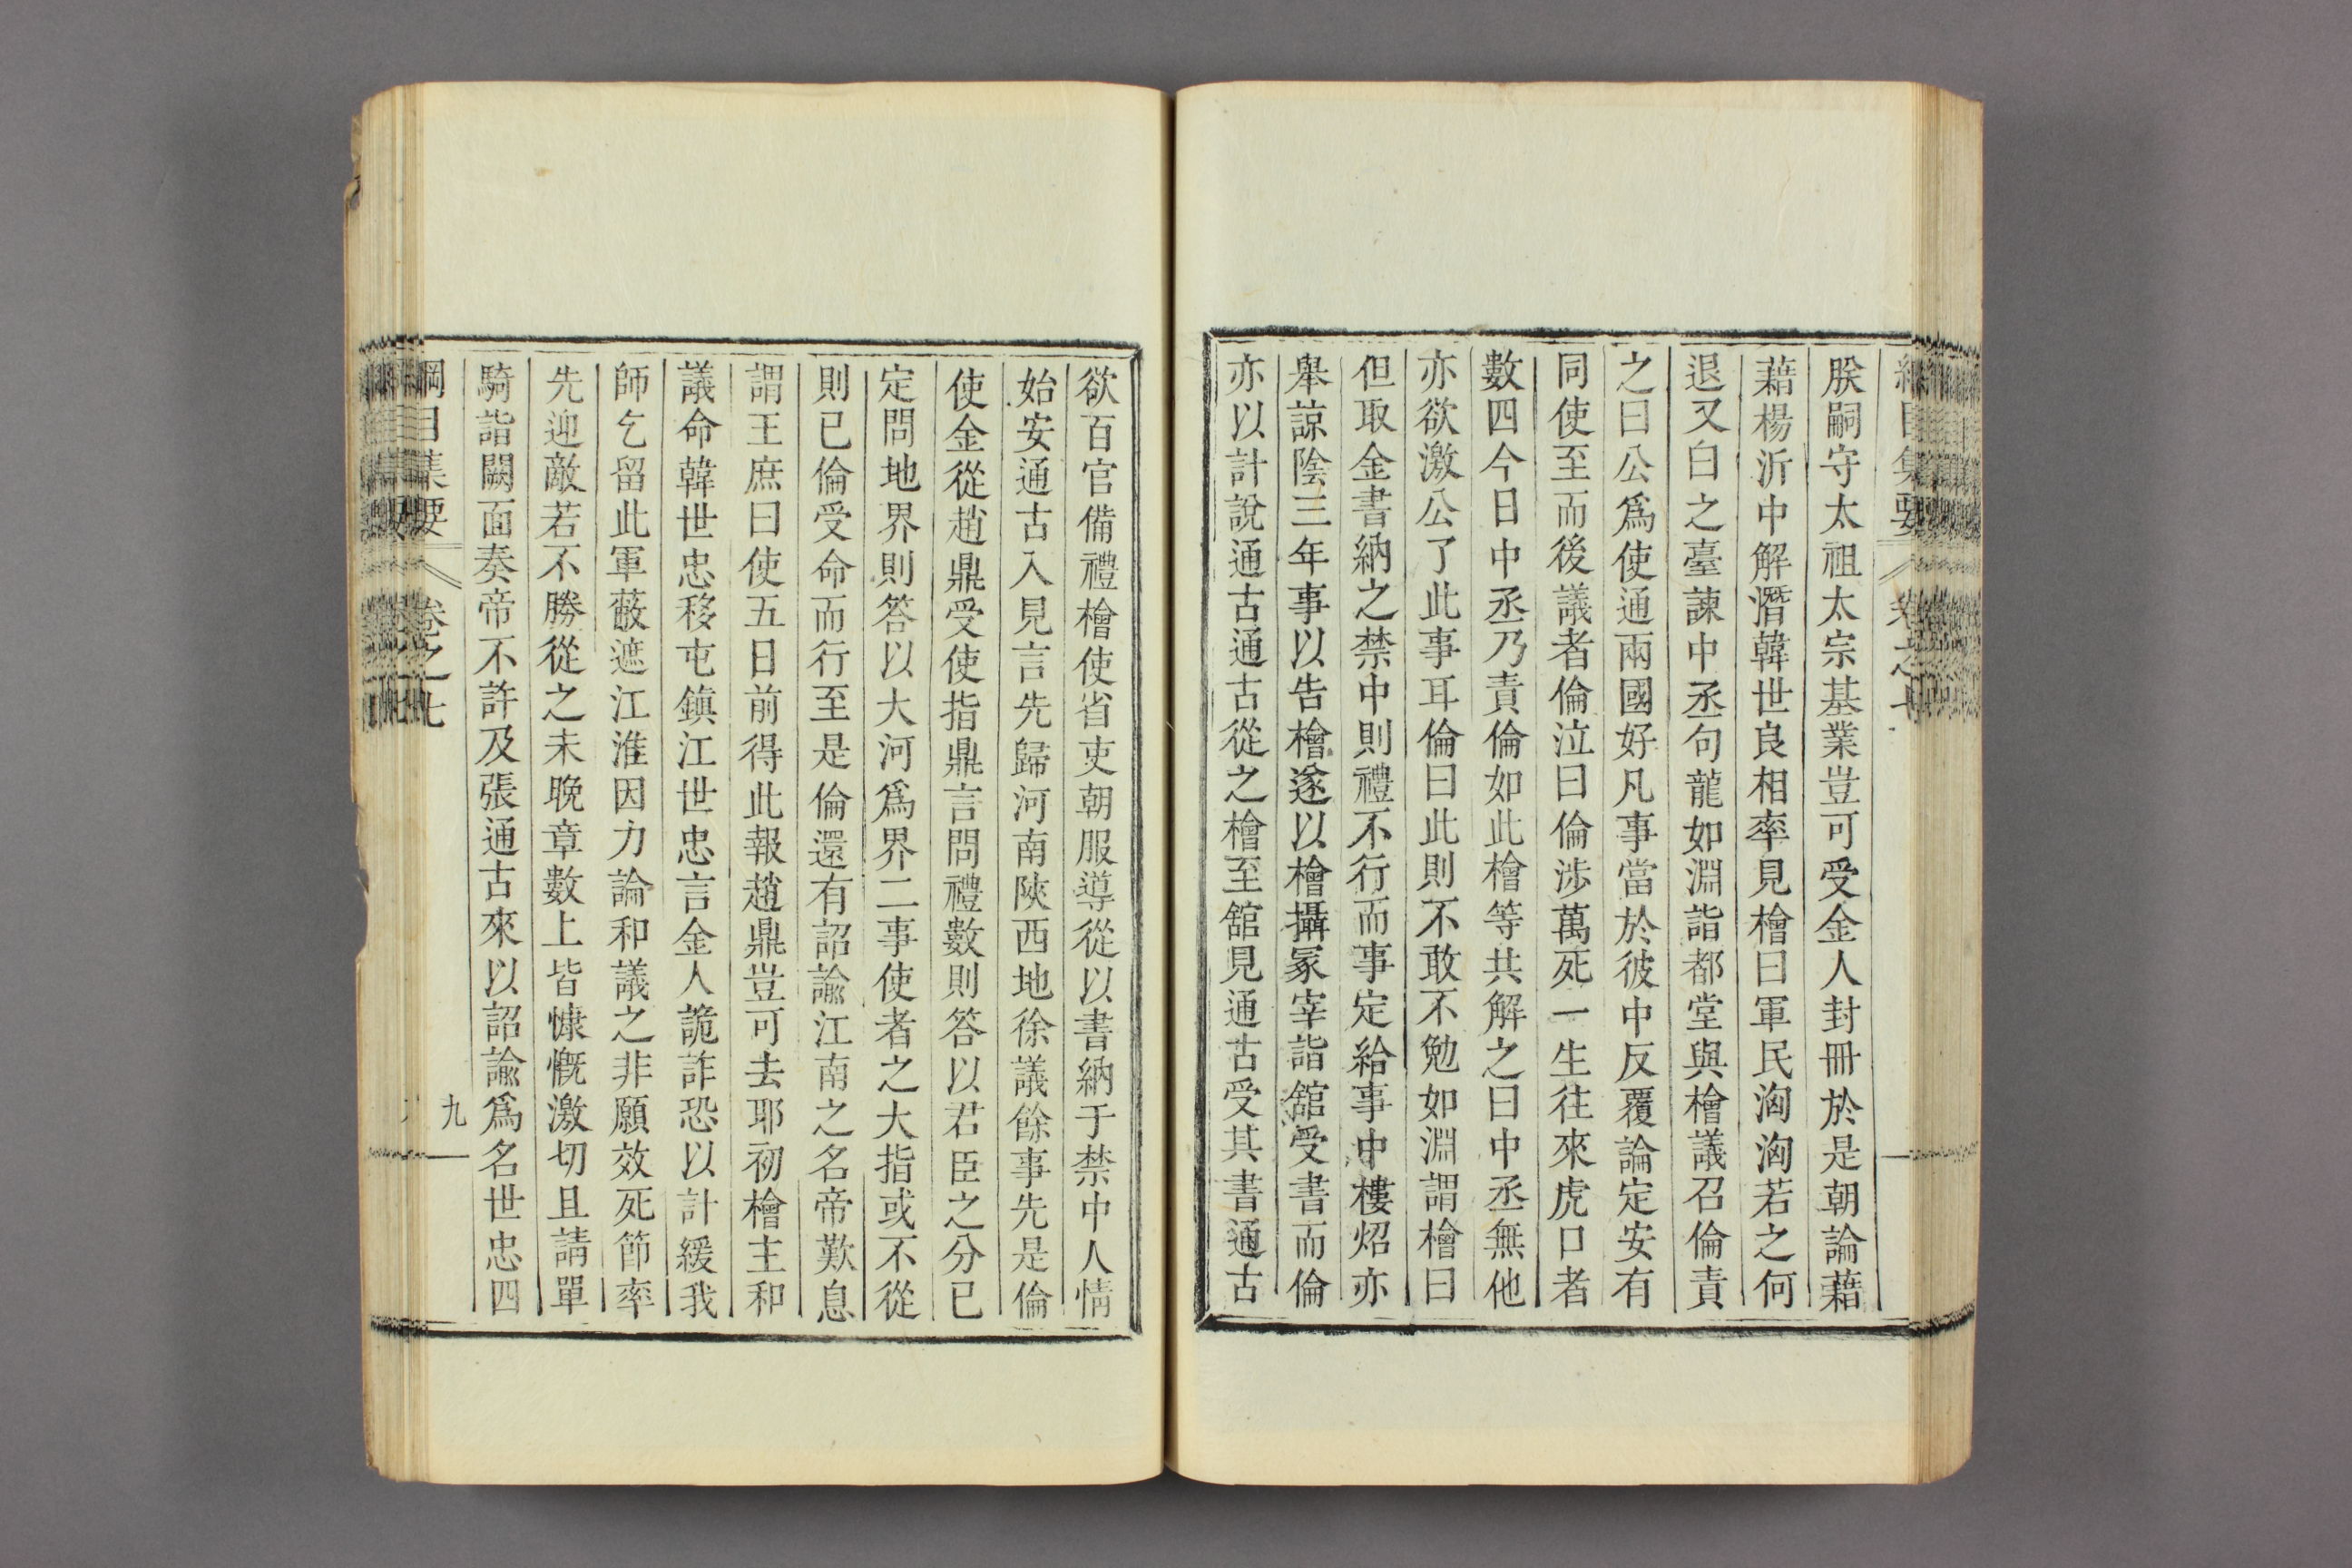 朕嗣守太祖太宗基業豈可受金人封冊於是朝論藉
藉楊沂中解潛韓世良相率見檜曰軍民洶洶若之何
退又白之臺諫中丞句龍如淵詣都堂與檜議召倫責
之曰公爲使通兩國好凡事當於彼中反覆論定安有
同使至而後議者倫泣曰倫涉萬死一生往來虎口者
數四今日中丞乃責倫如此檜等共解之曰中丞無他
亦欲激公了此事耳倫曰此則不敢不勉如淵謂檜曰
但取金書納之禁中則禮不行而事定給事中樓炤亦
舉諒陰三年事以告檜遂以檜攝冢宰詣舘受書而倫
亦以計說通古通古從之檜至舘見通古受其書通古
欲百官備禮檜使省吏朝服導從以書納于禁中人情
始安通古入見言先歸河南陝西地徐議餘事先是倫
使金從趙鼎受使指鼎言問禮數則答以君臣之分已
定問地界則答以大河爲界二事使者之大指或不從
則已倫受命而行至是倫還有詔諭江南之名帝歎息
謂王庶曰使五日前得此報趙鼎豈可去耶初檜主和
議命韓世忠移屯鎮江世忠言金人詭詐恐以計緩我
師乞留此軍蔽遮江淮因力論和議之非願效死節率
先迎敵若不勝從之未晚章數上皆慷慨激切且請單
騎詣闕面奏帝不許及張通古來以詔諭爲名世忠四
綱目集要 卷之七 九